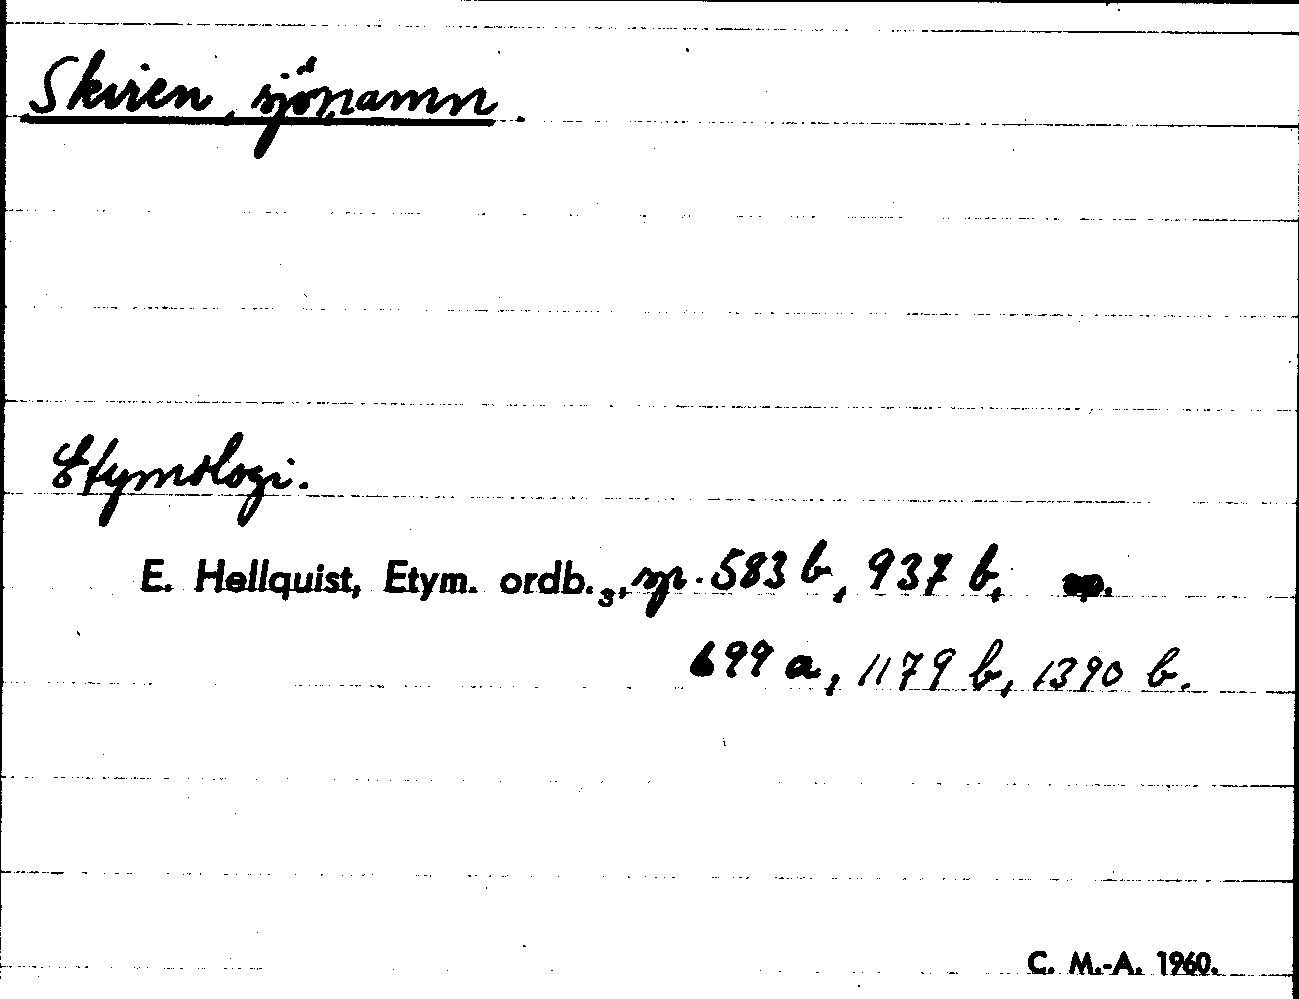 Skiren, sjönamn.
Etymologi.
E. Hellquist, Etym. ordb.3, sp. 583 b, 937 b,
699 a, 1179 b, 1390 b.
C. M.-A. 1960.